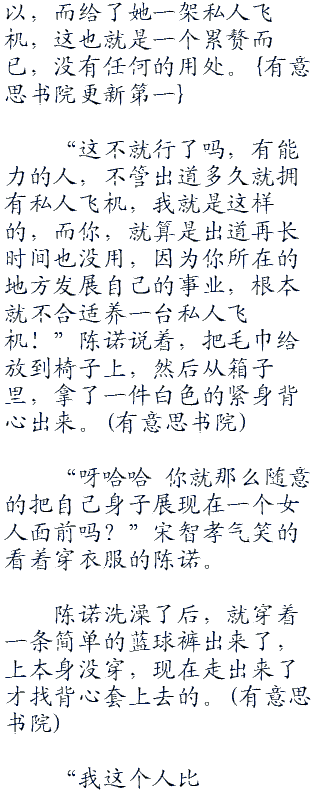 以，而给了她一架私人飞
机，这也就是一个累赘而
已，没有任何的用处。{有意
思书院更新第一}
“这不就行了吗，有能
力的人，不管出道多久就拥
有私人飞机，我就是这样
的，而你，就算是出道再长
时间也没用，因为你所在的
地方发展自己的事业，根本
就不合适养一台私人飞
机！”陈诺说着，把毛巾给
放到椅子上，然后从箱子
里，拿了一件白色的紧身背
心出来。(有意思书院)
“呀哈哈 你就那么随意
的把自己身子展现在一个女
人面前吗？”宋智孝气笑的
看着穿衣服的陈诺。
陈诺洗澡了后，就穿着
一条简单的蓝球裤出来了，
上本身没穿，现在走出来了
才找背心套上去的。(有意思
书院)
“我这个人比